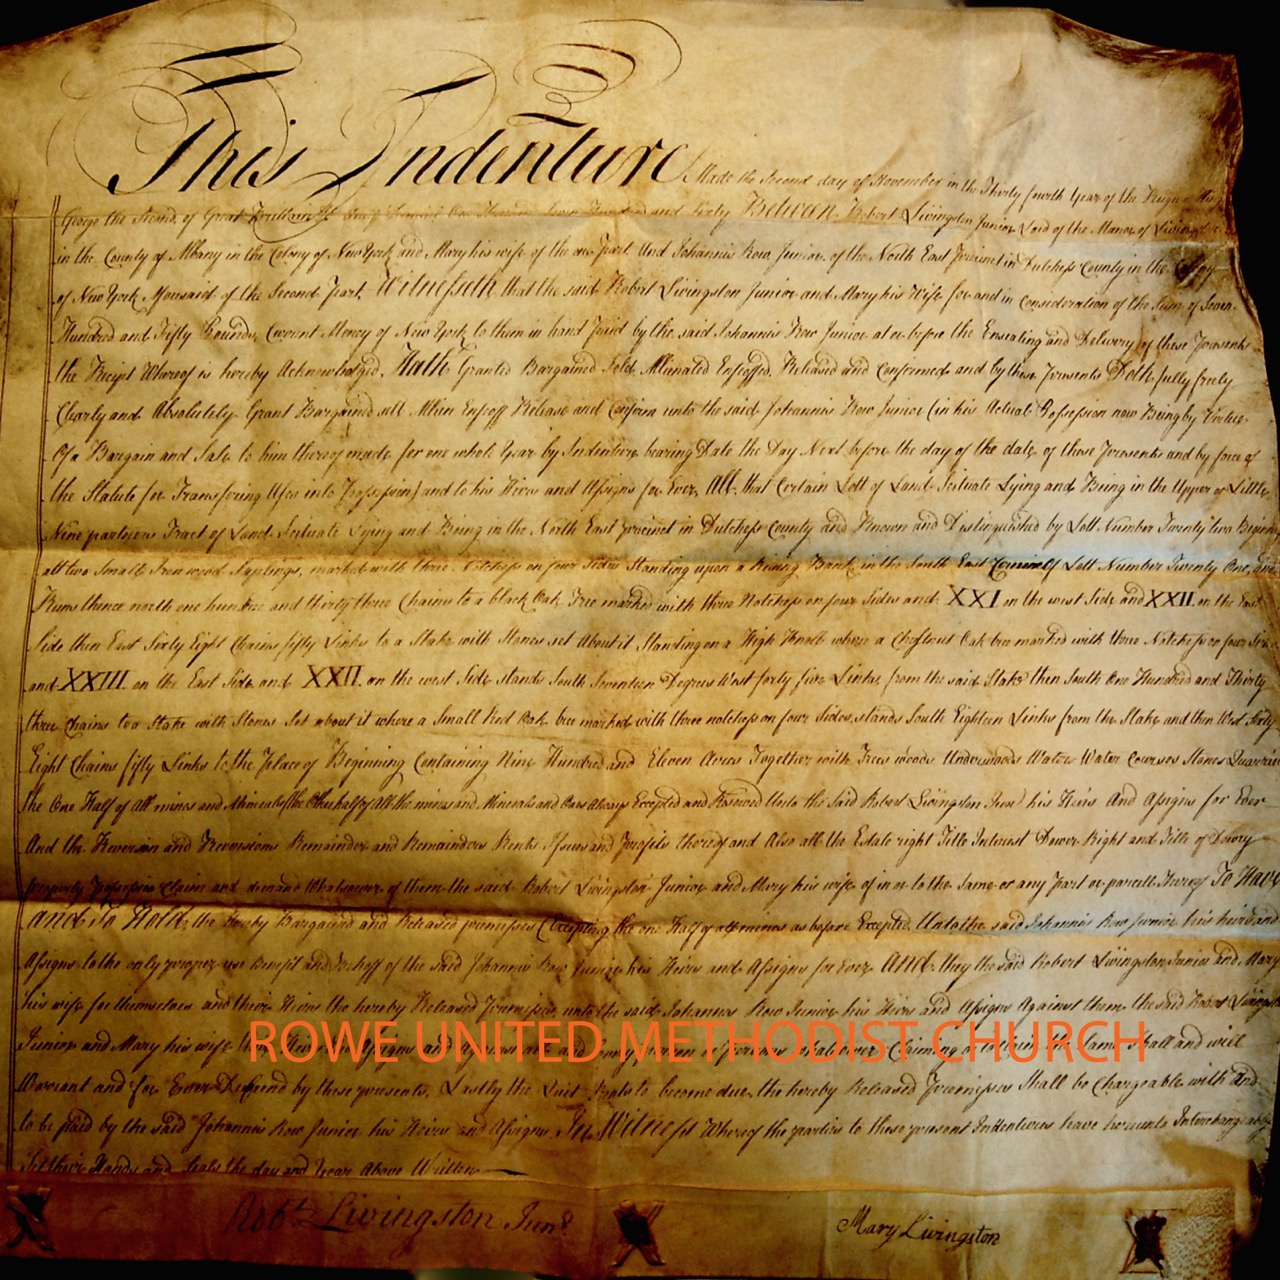 This Indenture Made the Second day of November in the Thirty fourth Year of the Reign
George the Second, of Great Brittain One Thousand Seven Hundred and Sixty Between Robert Livingston Junior Lord of the Manor of Livingston
in the County of Albany in the Colony of New York and Mary his wife of the one Part And Johannis Row Junior of the North East Precinct in Dutchess County in the Colony
of New York Aforesaid of the Second Part Witnesseth that the said Robert Livingston Junior and Mary his Wife for and in Consideration of the Sum of Seven
Hundred and Fifty Pounds Current Money of New York to them in hand Paid by the said Johannis Row Junior at or before the Ensealing and Delivery of these Presents
the Receipt Whereof is hereby Acknowledged, Hath Granted Bargained Sold Alienated Enfeoffed Released and Confirmed and by these Presents Doth fully freely
Clearly and Absolutely Grant Bargain sell Alien Enfeoff Release and Confirm unto the said Johannis Row Junior (in his Actual Possession now Being by Virtue
Of a Bargain and Sale to him thereof made for one whole Year by Indenture bearing Date the Day Next before the day of the date of these Presents and by force of
the Statute for Transfering Uses into Possession) and to his Heirs and Assigns for Ever All that Certain Lott of Land Scituate Lying and Being in the Upper or Little
Nine partners Tract of Land Scituate Lying and Being in the North East Precinct in Dutchess County and Known and Distinguished by Lott Number Twenty two
att two Small Iron wood Saplings, marked with three Notches on four Sides Standing upon a Rising Bank in the South East Corner Of Lott Number Twenty One, and
Runs thence north one hundred and thirty three Chains to a black Oak Tree marked with three Notches on four Sides and XXI on the west Side and XXII on the East
Side then East Sixty Eight Chains fifty Links to a Stake with Stones set About it Standing on a High Knob where a Chestnut Oak tree marked with three Notches on four Sides
and XXIII on the East Side and XXII on the west Side stands South Seventeen Degrees West forty five Links from the said Stake then South One Hundred and Thirty
three Chains to a Stake with Stones Set about it where a Small Red Oak tree marked with three notches on four Sides, stands South Eighteen Links from the Stake and then West Sixty
Eight Chains fifty Links to the Place of Beginning Containing Nine Hundred and Eleven Acres Together with Trees woods Underwoods Water Water Courses Stones Quarries
the One Half of All mines and Minerals (the Other half of All the mines and Minerals and Oars Always Excepted and Reserved Unto the Said Robert Livingston Junr his Heirs And Assigns for Ever
And the Reversion and Reversions Remainder and Remainders Rents Issues and Profits thereof and Also all the Estate right Title Interest Dower Right and Title of Dowry
Property Possession Claim and demand Whatsoever of them the said Robert Livingston Junior and Mary his wife of in or to the Same or any Part or parcell thereof To Have
and To Hold the hereby Bargained and Released premisses (Excepting the one Half of all mines as before Excepted Unto the said Johannis Row Junior his heirs and
Assigns to the only proper use Benefit and Behoff of the said Johannis Row Junior his Heirs and Assigns for Ever And they the said Robert Livingston Junior and Mary
his wife for themselves and their Heirs the hereby Released Premises unto the said Johannis Row Junior his Heirs and Assigns Against them the said Robert Livingston
Junior and Mary his wife Assigns and Claiming Same Shall and will
ROWE UNITED METHODIST CHURCH
Warrant and for Ever Deffend by these presents, Lastly the Quit Rents to become due the hereby Released Premisses Shall be Chargeable with and
to be paid by the said Johannis Row Junior his Heirs and Assigns In Witness Whereof the parties to these present Indentures have hereunto Interchangeably
Set their Hands and Seals the day and Year Above Written
Robt Livingston Junr Mary Livingston